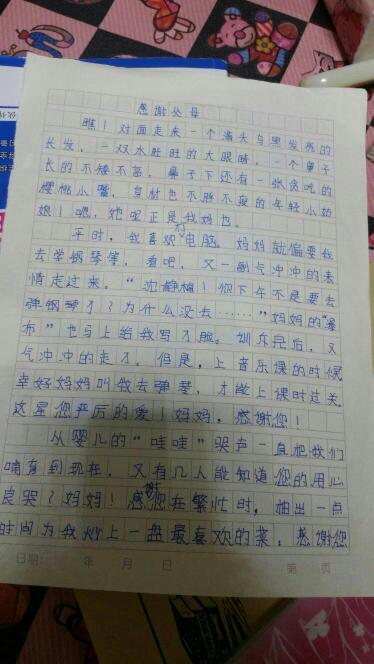 感谢父母
瞧！对面走来一个满头乌黑发亮的
长发，一双水旺旺的大眼睛，一个鼻子
长的不矮不高，鼻子下还有一张贪吃的
樱桃小嘴，身材也不胖不瘦的年轻小姑
娘！嗯，她呢正是我妈也。
平时，我喜欢打电脑，妈妈就偏要我
去学钢琴等，看吧，又一副气冲冲的表
情走过来。“沈静梅！你下午不是要去
弹钢琴了？为什么没去……”妈妈的“瀑
布”也马上给我写了服。训斥完后，又
气冲冲的走了。但是，上音乐课的时候
幸好妈妈叫我去弹琴，才能上课时过关
这是您严厉的爱！妈妈，感谢您！
从婴儿的“哇哇”哭声一直把我们
哺育到现在，又有几人能知道您的用心
良哭？妈妈！感谢您在繁忙时，抽出一点
时间为我炒上一盘最喜欢的菜，感谢您
日期： 年 月 日 第 页